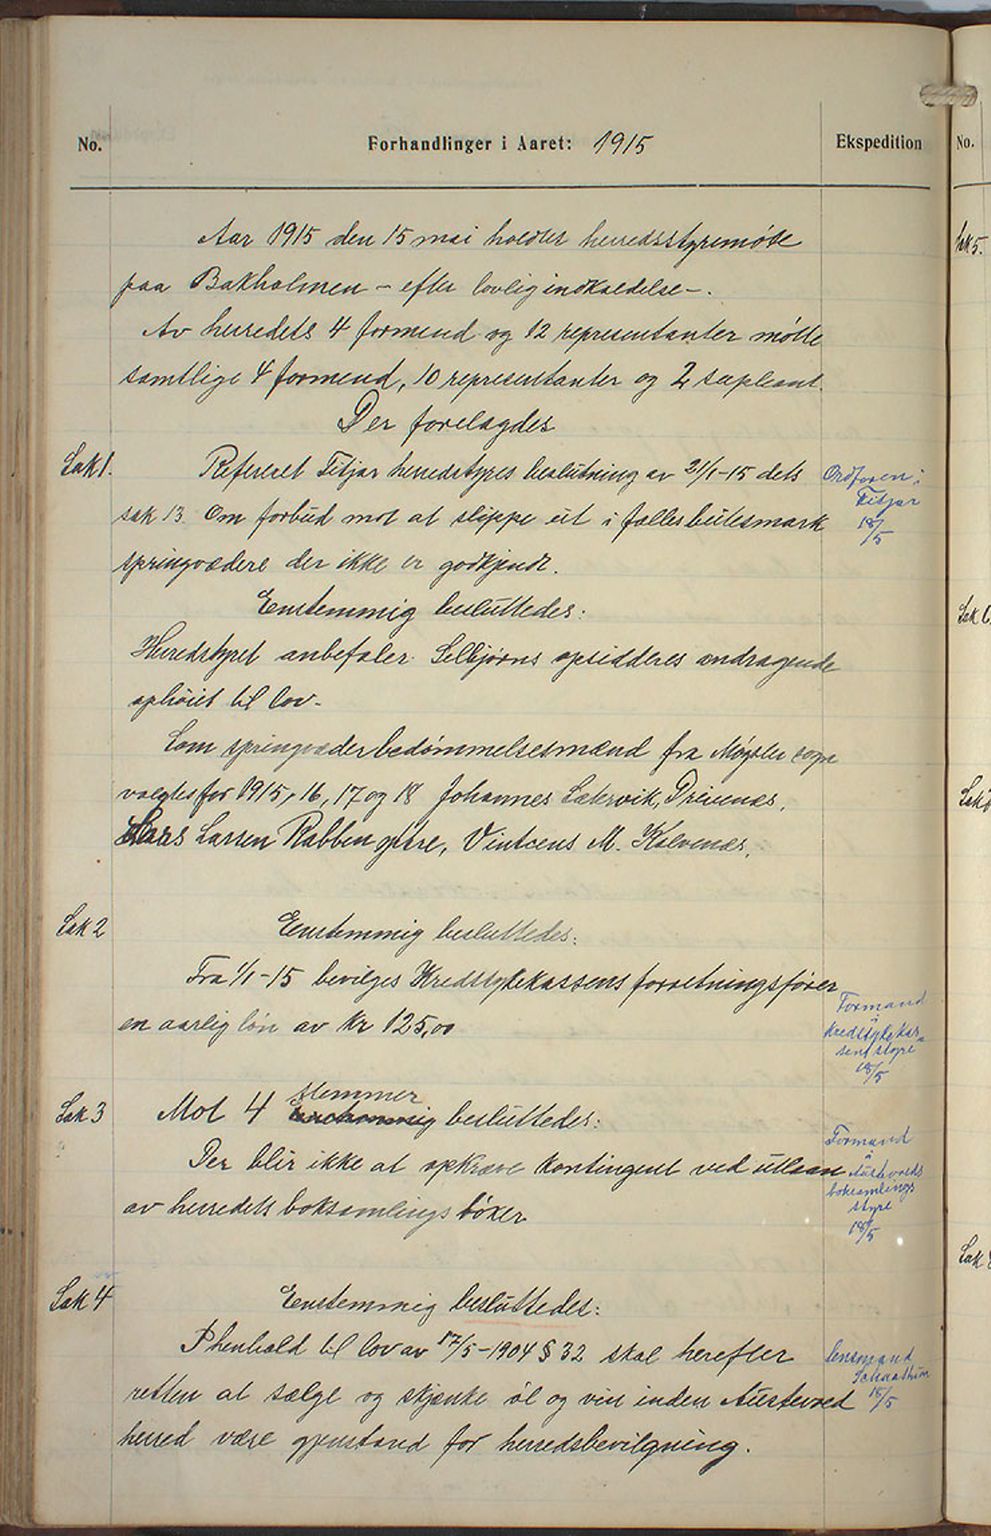 No.
Forhandlinger i Aaret: 1915
Ekspedition
No.
Aar 1915 den 15 mai holdtes herredsstyremøte
paa Bakholmen - efter lovlig indkaldelse -.
Av herredets 4 formend og 12 representanter møtte
samtlige 4 formend, 10 representanter og 2 supleant.
Der forelagdes
Sak 1.
Refereret Fitjar herredstyres beslutning av 21/1-15 dets
Ordføren i
Fitjar
18/5
sak 13. Om forbud mot at slippe ut i fællesbeitesmark
springvædere der ikke er godkjendt.
Enstemmig besluttedes:
Herredstyret anbefaler Selbjørns opsidderes andragende
ophøiet til lov.
Som springvæderbedømmelsesmænd fra Møgster sogn
valgtes for 1915, 16, 17 og 18 Johannes Sætervik, Drivenæs,
Lars Larsen Rabben ytre, Vintcens M. Kalvenæs.
Sak 2
Enstemmig besluttedes:
Fra 1/1-15 bevilges Kredssykekassens forretningsfører
en aarlig løn av kr 125,00
Formand
i
kredssykekas-
sens styre
18/5
Sak 3
Mot 4 stemmer Enstemmig besluttedes:
Der blir ikke at opkræve kontingent ved utlaan
av herredets boksamlings bøker
Formand
i Austevolds
boksamlings
styre
18/5
Sak 4
Enstemmig besluttedes:
I henhold til lov av 17/5-1904 § 32 skal herefter
retten at sælge og skjænke øl og vin inden Austevold
herred være gjenstand for herredsbevilgning.
lensmand
18/5
Sak 5.
Sak 6
Sak
Sak